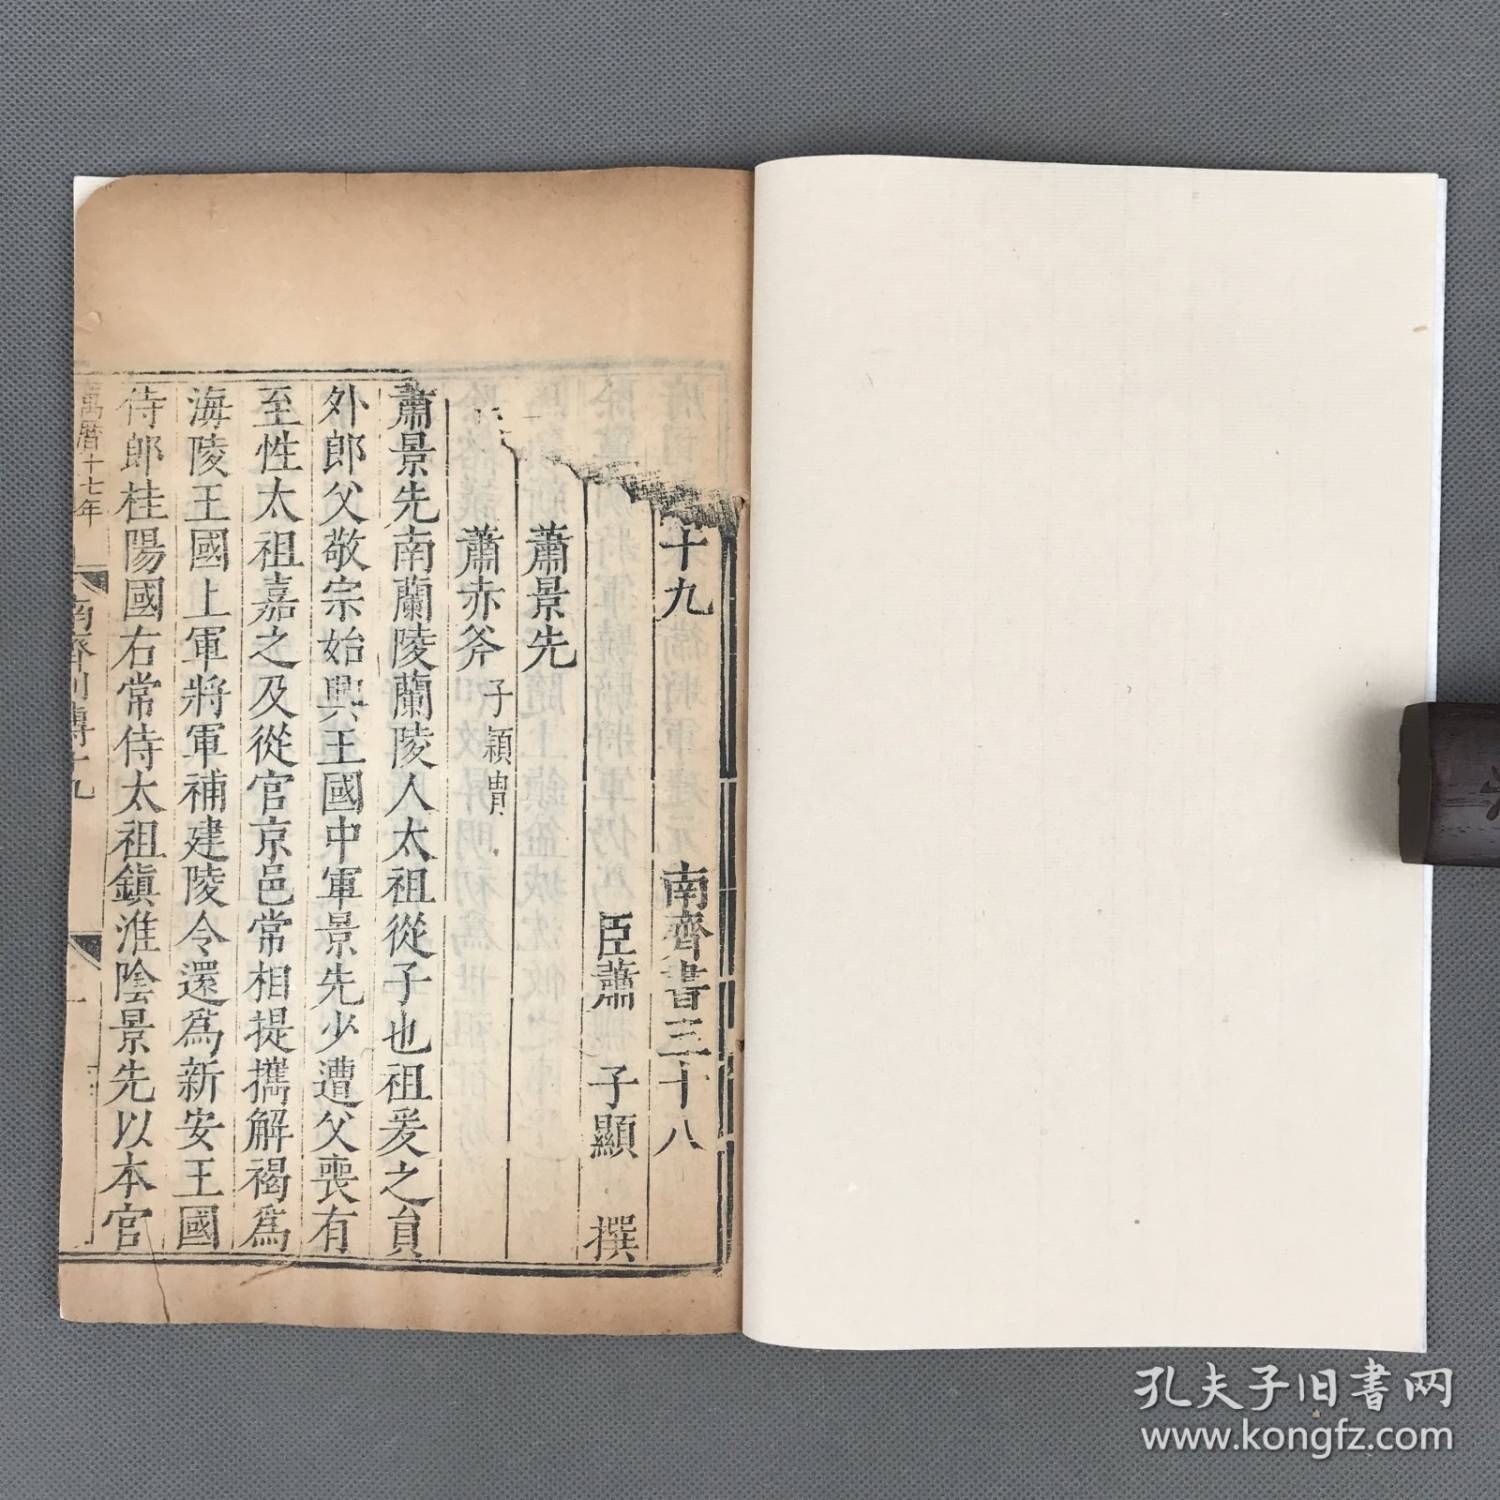 十九
南齊書三十八
臣蕭 子顯 撰
蕭景先
蕭赤斧 子穎冑
蕭景先南蘭陵蘭陵人太祖從子也祖爰之員
外郎父敬宗始興王國中軍景先少遭父喪有
至性太祖嘉之及從官京邑常相提攜解褐爲
海陵王國上軍將軍補建陵令還爲新安王國
侍郎桂陽國右常侍太祖鎮淮陰景先以本官
萬曆十七年
南齊列傳十九
一
孔夫子旧书网
www.kongfz.com